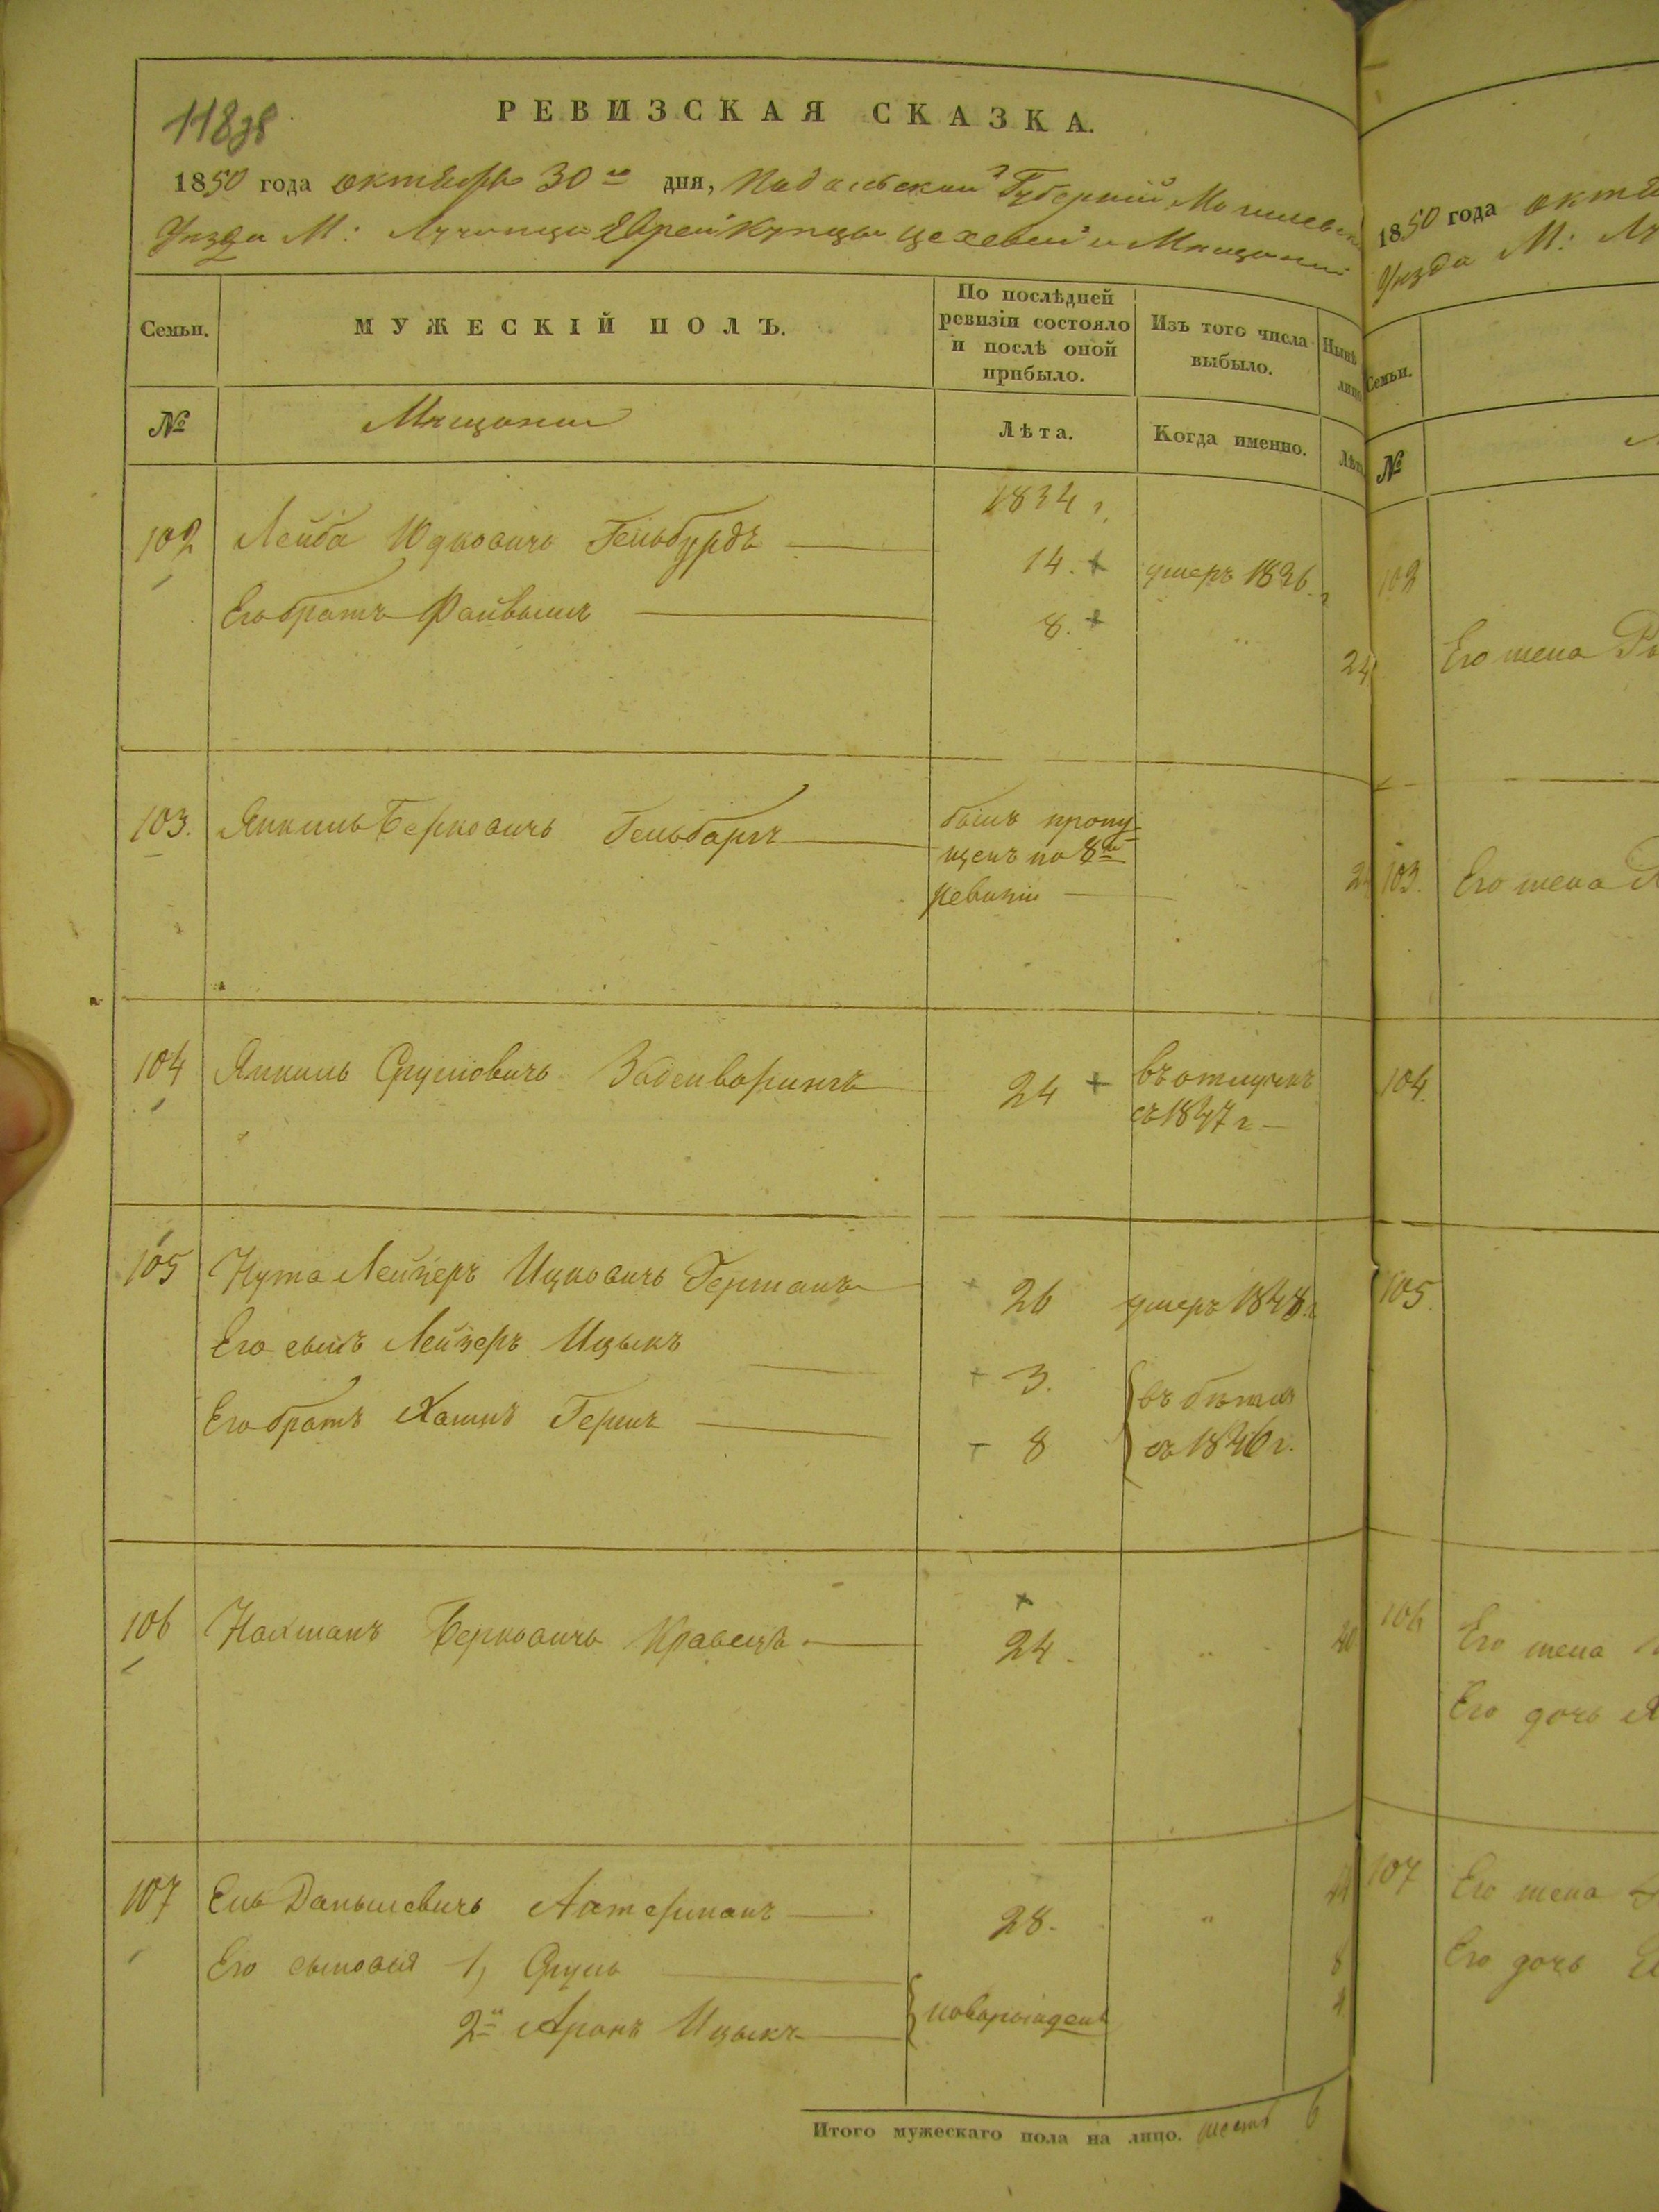 118
РЕВИЗСКАЯ СКАЗКА.
1850 года октября 30го дня, Подольской Губерніи Могилевск
Уезда М: Лучинца Евреи Купцы цеховыи и Мещани
Семьи.
МУЖЕСКІЙ ПОЛЪ.
По послѣдней ревизіи состояло и послѣ оной прибыло.
Изъ того числа выбыло.
Нынѣ лицо
№
Мещани
Лѣта.
Когда именно.
Лѣта
1834 г.
102 Лейба Юдковичь Гельбурдъ 14. умеръ 1836 г
Его братъ Файвышъ 8. 24
103. Янкиль Берковичь Гольбаргъ былъ пропу-
щенъ по 8й
ревизіи
104 Янкиль Срулiовичь 24 въ отлучкѣ
съ 1847 г
105 Нута Лейзеръ Ицковичь Германъ 26 умеръ 1848 г
Его сынъ Лейзеръ Ицыкъ 3. въ бегах
Его братъ Хаимъ Гершъ 8 съ 1846 г.
106 Нахманъ Берковичь Кравецъ 24. 40
107 Ель Данилевичь Ахтерманъ 28. 44
Его сыновья 1, Сруль 8
2й Аронъ Ицыкъ новорожден 4
Итого мужескаго пола на лицо. шесть 6
1850 года октя
Уезда М: Лу
Семьи.
№
102
Его жена
103. Его жена
104.
105.
106 Его жена
Его дочь
107 Его жена
Его дочь